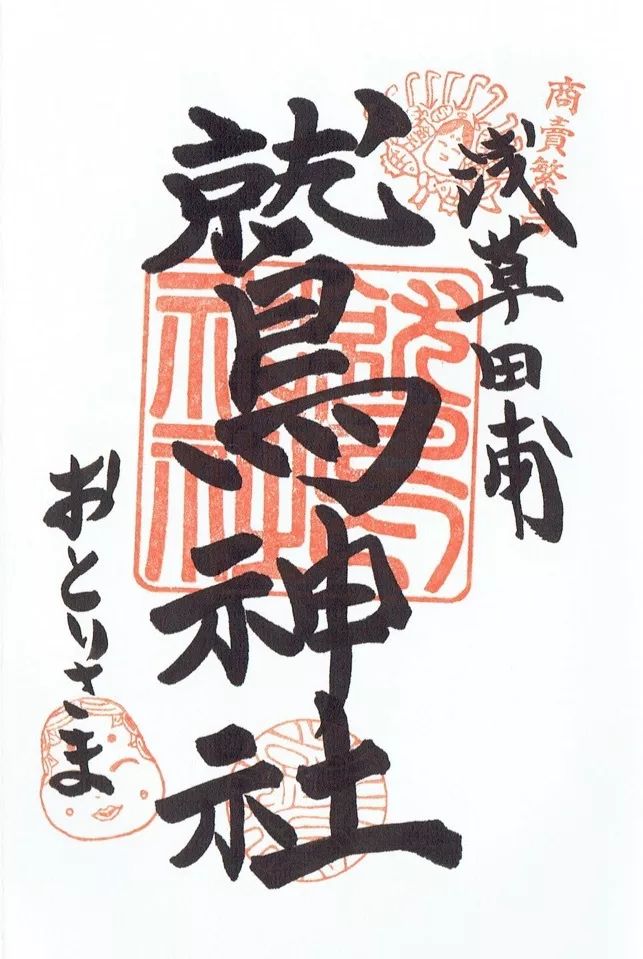 商賣繁昌
浅草田甫
鷲神社
鷲神社
おとりさま